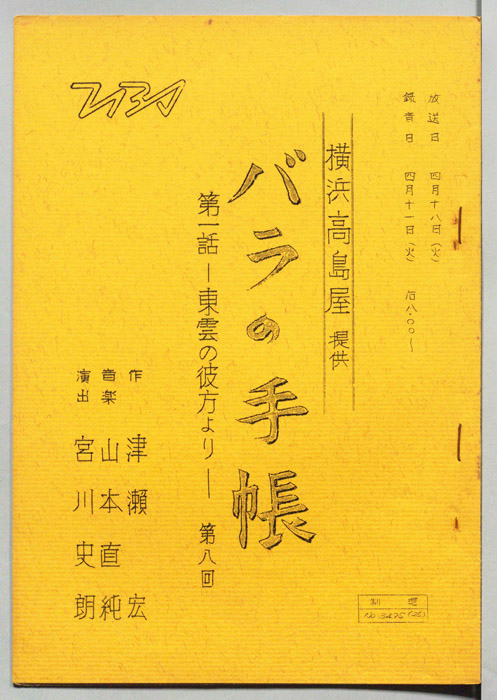 放送日 四月十八日(火)
録音日 四月十一日(火) 后八・〇〇〜
横浜高島屋 提供
バラの手帳
第一話ー東雲の彼方よりー 第八回
作 津瀬宏
音楽 山本直純
演出 宮川史朗
制 理